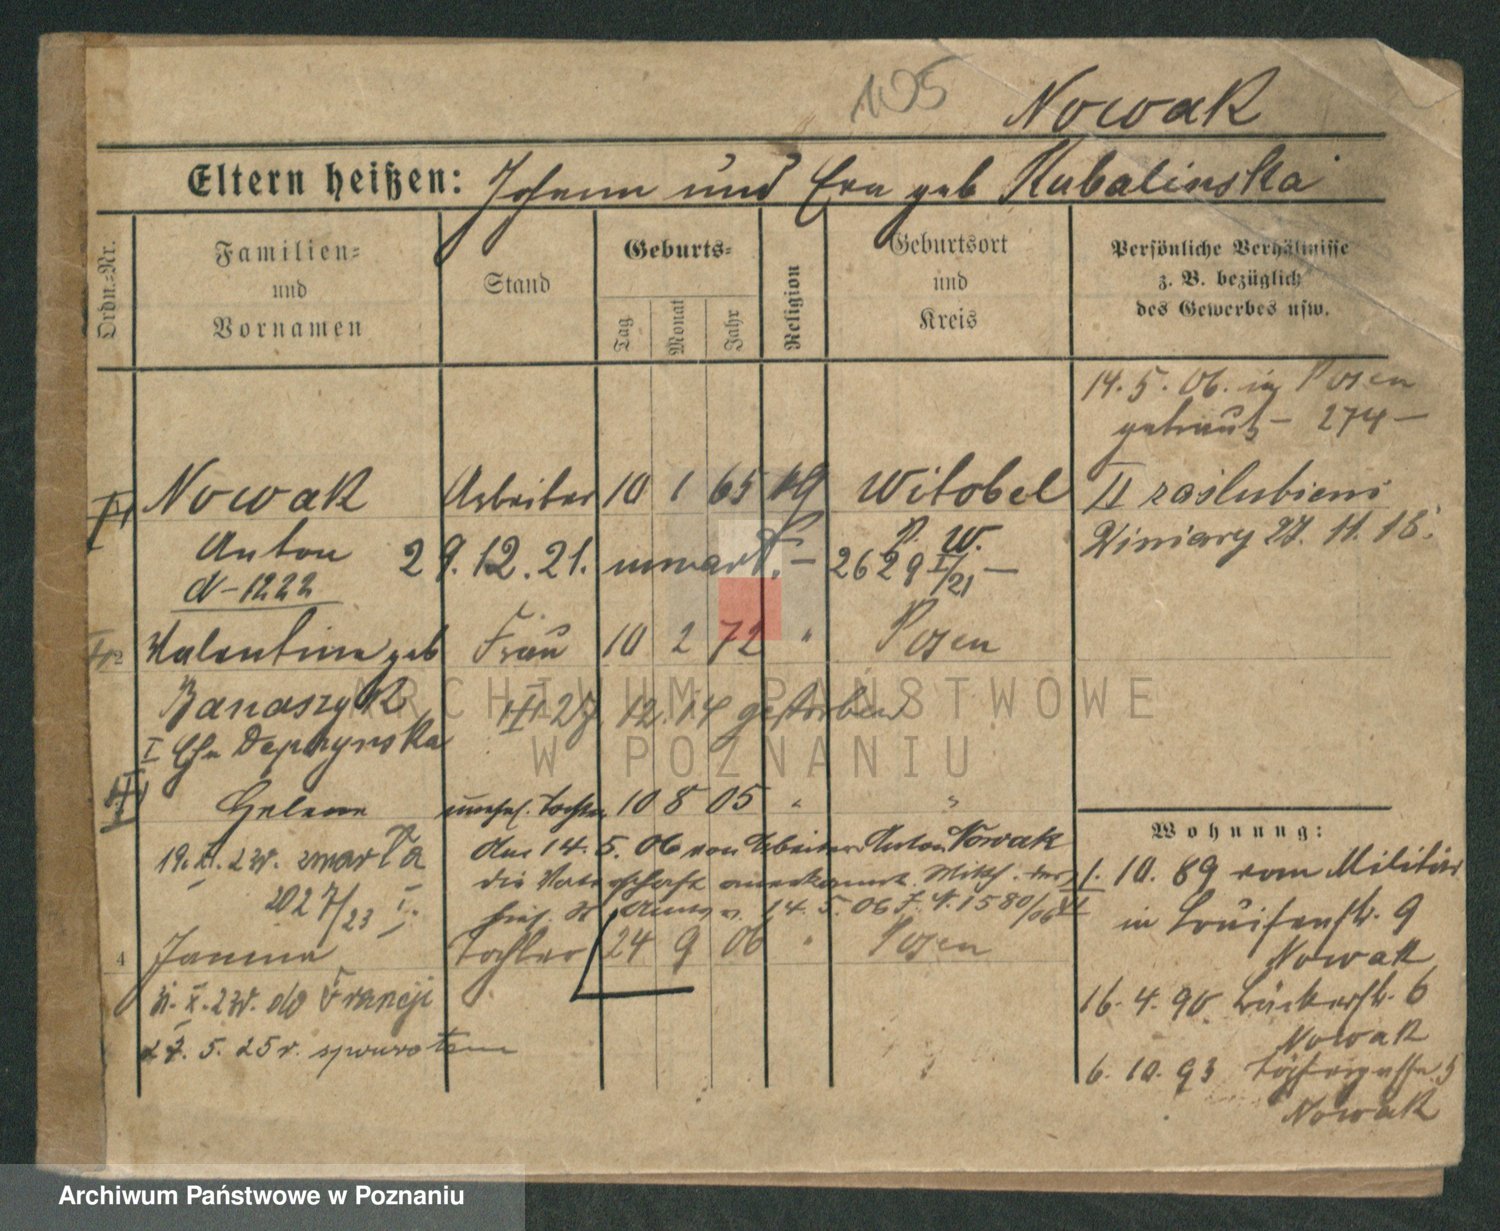 105
Nowak
Eltern heißen: Johann und Eva geb Kubalinska
Ordn.-Nr.
Familien- und Vornamen
Stand
Geburts-
Tag
Monat
Jahr
Religion
Geburtsort und Kreis
Persönliche Verhältnisse z. B. bezüglich des Gewerbes usw.
14. 5. 06. in Posen
getraut – 274 –
Nowak Arbeiter 10 1 65 Witobel
II zaślubieni
Anton 29. 12. 21. umarł. – 2629 I/21 –
P. W.
Winiary 27. 11. 18.
d – 1222
2 Valentine geb Frau 10 2 72 " Posen
Banaszyk 27. 12. 14 gestorben
I Ehe
Helene unehel. Tochter 10 8 05 " "
Wohnung:
19. 2. 23r. zmarła
Am 14. 5. 06 von Arbeiter Anton Nowak
die Vaterschaft anerkannt.
14. 5. 06 J. N. 1580/06 VI
2027/23 I.
1. 10. 89 vom Militär
in Louisenstr. 9
Nowak
4 Janina Tochter 24 9 06 " Posen
X. 23r. do Francji
16. 4. 90 Bäckerstr. 6
Nowak
5. 25 r. zpowrotem
6. 10. 93 Töpfergasse 5
Nowak
ARCHIWUM PAŃSTWOWE
W POZNANIU
Archiwum Państwowe w Poznaniu